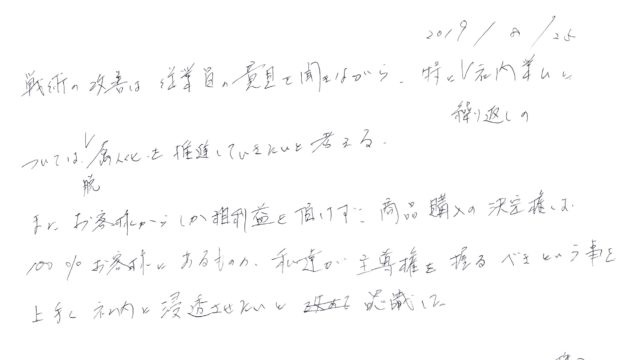 2019/8/25
戦術の改善は従業員の意見を聞きながら、特に社内業ムに
繰り返しの
ついては属人化を推進していきたいと考える。
脱
また お客様からしか粗利益を頂けず、商品購入の決定権は
100%お客様にあるものの、私達が主導権を握るべきという事を
上手く社内に浸透させたいと 認識した。